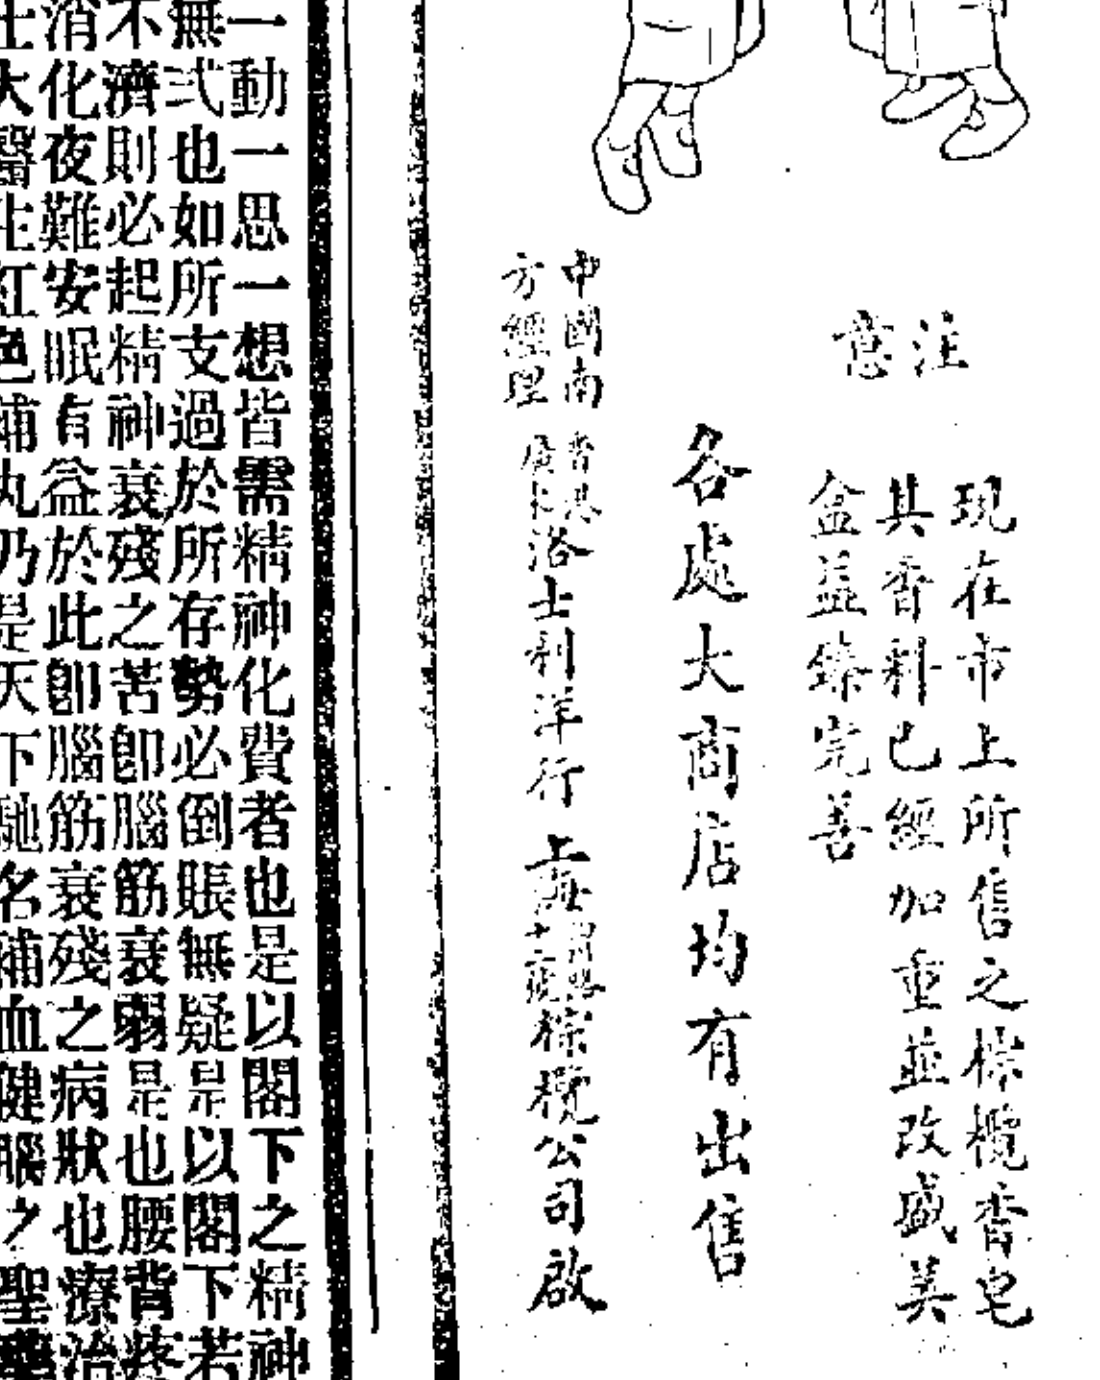 注意
現在市上所售之棕欖香皂
其香料已經加重並改盛美
盒益臻完善
各處大商店均有出售
中國南方經理
香港廣東洛士利洋行
上海棕欖公司啟
一動一思一想皆需精神化費者也是以閣下之精神
無弍也如所支過於所存勢必倒賬無疑是以閣下若
不濟則必起精神衰殘之苦卽腦筋衰弱是也腰背疼
消化夜難安眠有益於此卽腦筋衰殘之病狀也療治
士大醫生紅色補丸乃是天下馳名補血健腦之聖藥